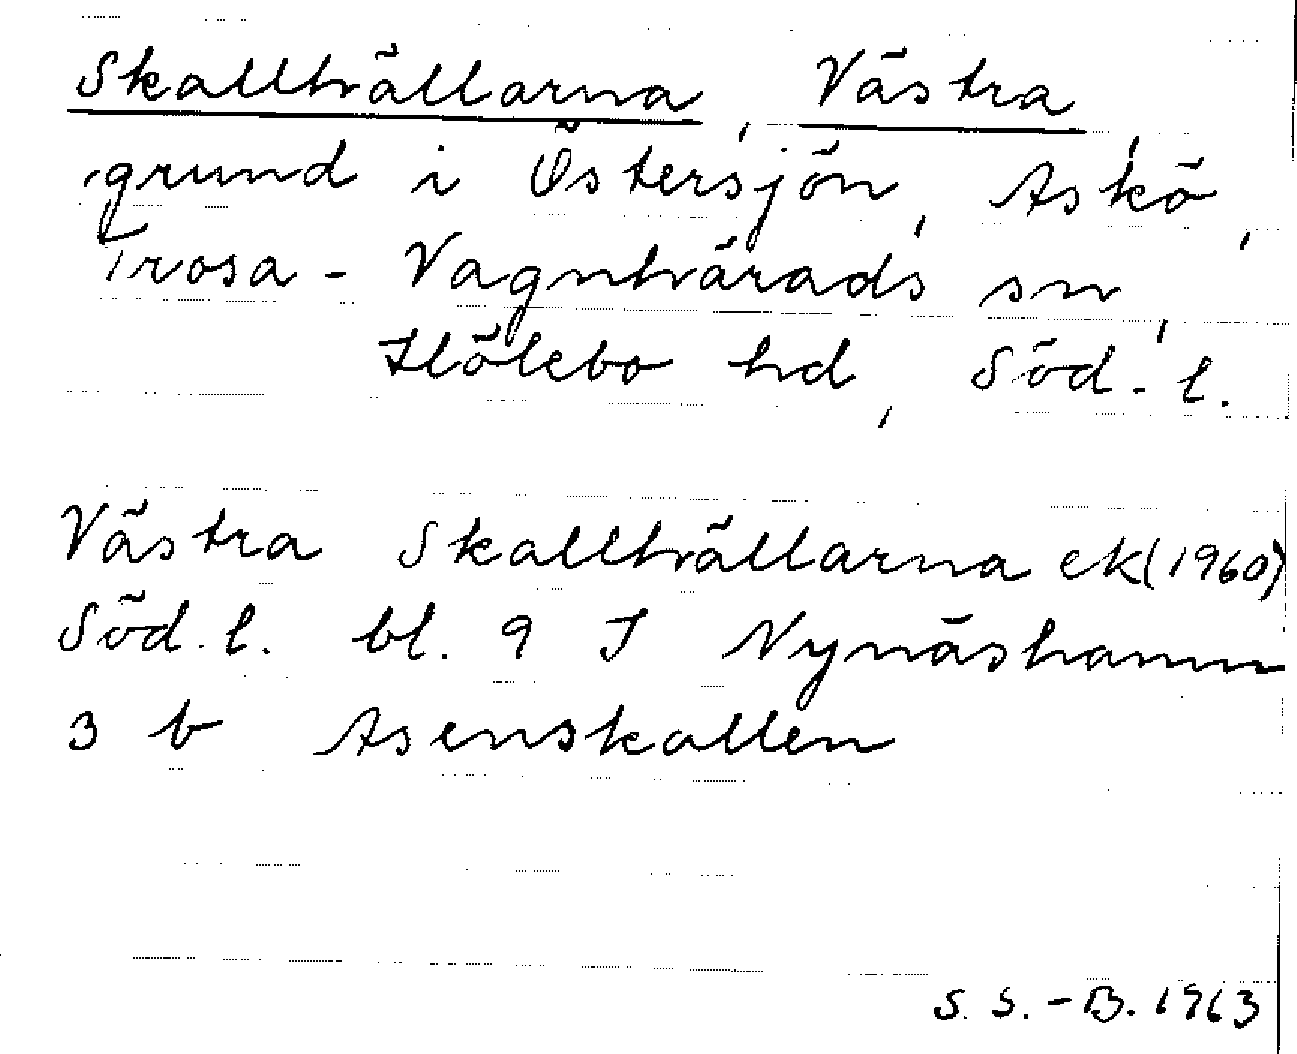 Skallhällarna, Västra,
grund i Östersjön, Askö,
Trosa - Vagnhärads sn,
Hölebo hd, Söd. l.
Västra Skallhällarna ek (1960)
Söd. l. bl. 9 I Nynäshamn
3 b Asenskallen
S. S. - B. 1963